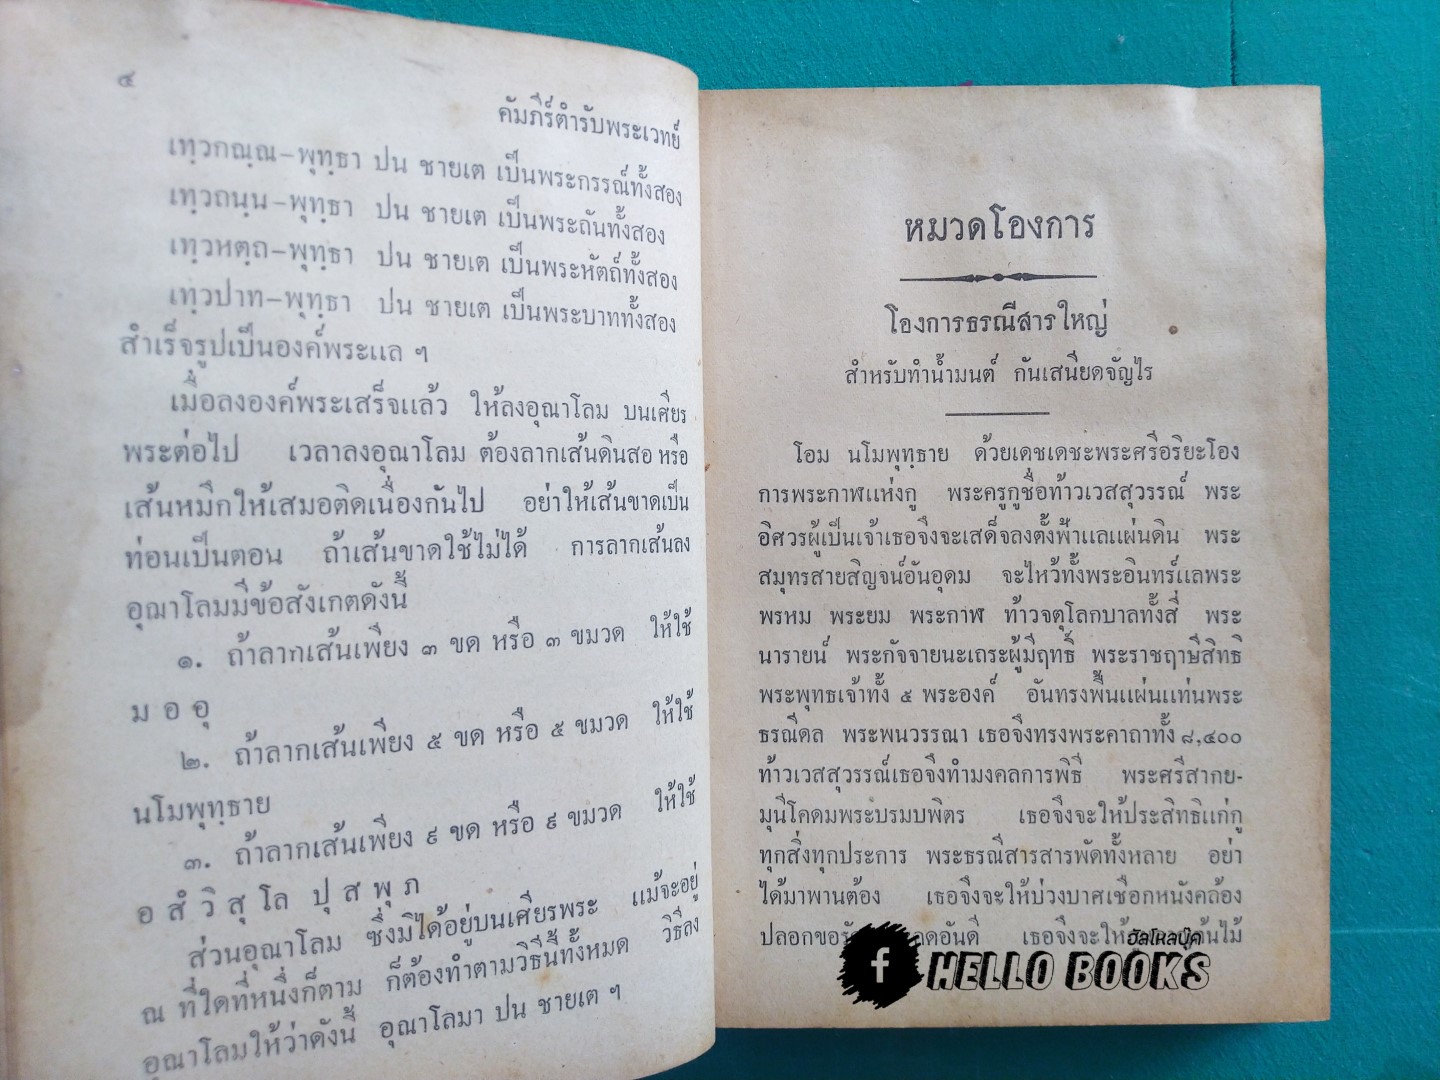 ๔
คัมภีร์ตำรับพระเวทย์
เทฺวกณฺณ–พุทฺธา ปน ชายเต เป็นพระกรรณ์ทั้งสอง
เทฺวถนฺน–พุทฺธา ปน ชายเต เป็นพระถันทั้งสอง
เทฺวหตฺถ–พุทฺธา ปน ชายเต เป็นพระหัตถ์ทั้งสอง
เทฺวปาท–พุทฺธา ปน ชายเต เป็นพระบาททั้งสอง
สำเร็จรูปเป็นองค์พระแล ฯ
เมื่อลงองค์พระเสร็จแล้ว ให้ลงอุณาโลม บนเศียร
พระต่อไป เวลาลงอุณาโลม ต้องลากเส้นดินสอ หรือ
เส้นหมึกให้เสมอติดเนื่องกันไป อย่าให้เส้นขาดเป็น
ท่อนเป็นตอน ถ้าเส้นขาดใช้ไม่ได้ การลากเส้นลง
อุณาโลมมีข้อสังเกตดังนี้
๑. ถ้าลากเส้นเพียง ๓ ขด หรือ ๓ ขมวด ให้ใช้
ม อ อุ
๒. ถ้าลากเส้นเพียง ๕ ขด หรือ ๕ ขมวด ให้ใช้
นโมพุทฺธาย
๓. ถ้าลากเส้นเพียง ๙ ขด หรือ ๙ ขมวด ให้ใช้
อ สํ วิ สุ โล ปุ ส พุ ภ
ส่วนอุณาโลม ซึ่งมิได้อยู่บนเศียรพระ แม้จะอยู่
ณ ที่ใดที่หนึ่งก็ตาม ก็ต้องทำตามวิธีนี้ทั้งหมด วิธีลง
อุณาโลมให้ว่าดังนี้ อุณาโลมา ปน ชายเต ฯ
หมวดโองการ
โองการธรณีสารใหญ่
สำหรับทำน้ำมนต์ กันเสนียดจัญไร
โอม นโมพุทฺธาย ด้วยเดชเดชะพระศรีอริยะโอง
การพระกาฬแห่งกู พระครูกูชื่อท้าวเวสสุวรรณ์ พระ
อิศวรผู้เป็นเจ้าเธอจึงจะเสด็จลงตั้งฟ้าแลแผ่นดิน พระ
สมุทรสายสิญจน์อันอุดม จะไหว้ทั้งพระอินทร์แลพระ
พรหม พระยม พระกาฬ ท้าวจตุโลกบาลทั้งสี่ พระ
นารายน์ พระกัจจายนะเถระผู้มีฤทธิ์ พระราชฤาษีสิทธิ
พระพุทธเจ้าทั้ง ๕ พระองค์ อันทรงพื้นแผ่นแท่นพระ
ธรณีดล พระพนวรรณา เธอจึงทรงพระคาถาทั้ง ๘,๔๐๐
ท้าวเวสสุวรรณ์เธอจึงทำมงคลการพิธี พระศรีสากย-
มุนีโคดมพระบรมบพิตร เธอจึงจะให้ประสิทธิแก่กู
ทุกสิ่งทุกประการ พระธรณีสารสารพัดทั้งหลาย อย่า
ได้มาพานต้อง เธอจึงจะให้บ่วงบาศเชือกหนังคล้อง
ปลอกขอ อันดี เธอจึงจะให้
ฮัลโหลบุ๊ค
HELLO BOOKS